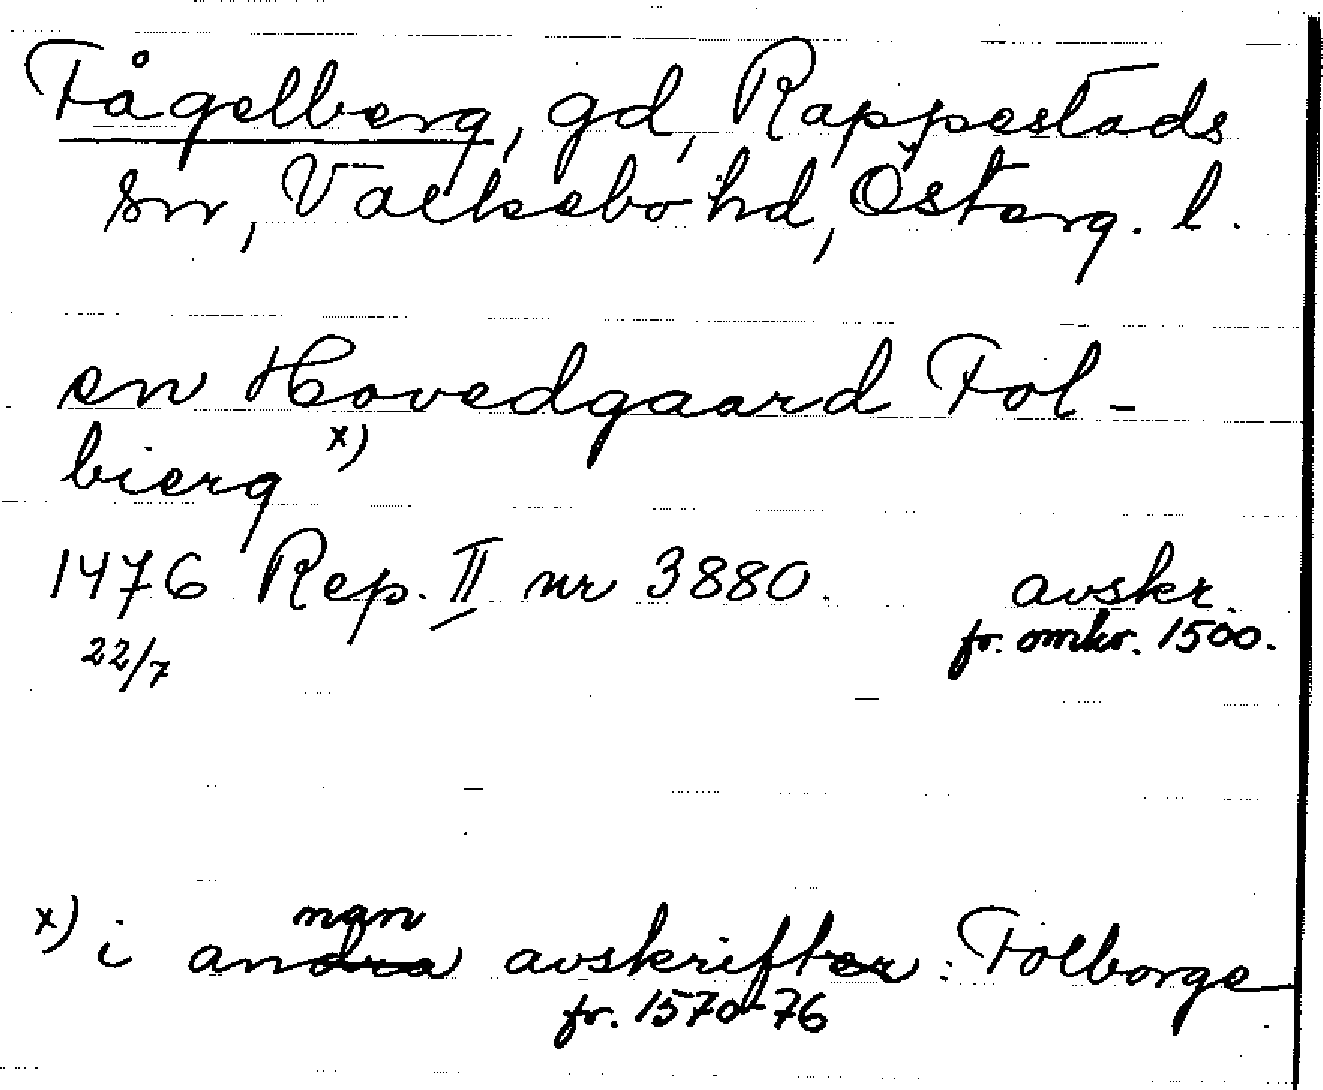 Fågelberg, gd, Rappestads
sn, Valkebo hd, Österg. l.
en Hovedgaard Fol-
bierg x)
1476 Rep. II nr 3880. avskr.
22/7 fr. omkr. 1500.
x) i annan avskrift : Folborge
fr. 1570-76